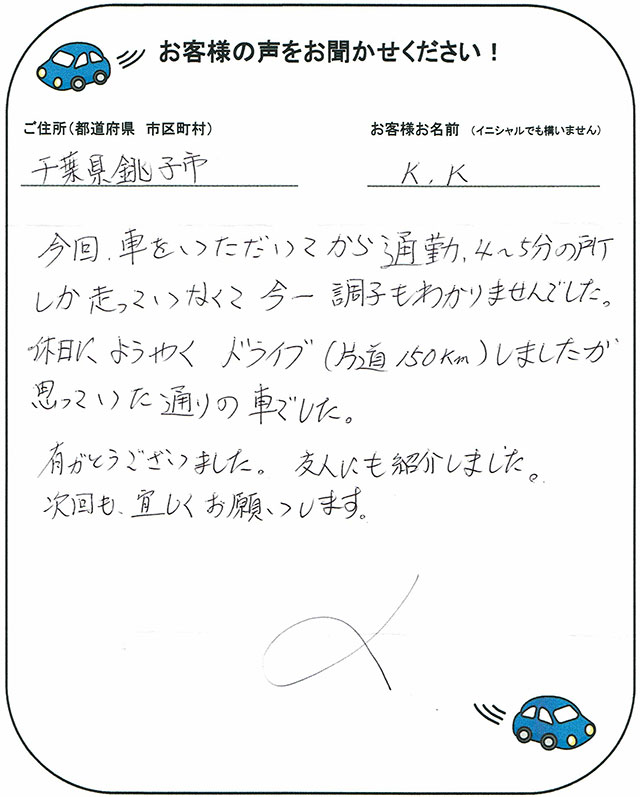 お客様の声をお聞かせください！
ご住所（都道府県 市区町村）
お客様お名前 （イニシャルでも構いません）
千葉県銚子市
K.K
今回、車をいただいてから通勤、4～5分の所
しか走っていなくて今一調子もわかりませんでした。
休日にようやくドライブ(片道150km)しましたが
思っていた通りの車でした。
有がとうございました。友人にも紹介しました。
次回も、宜しくお願いします。